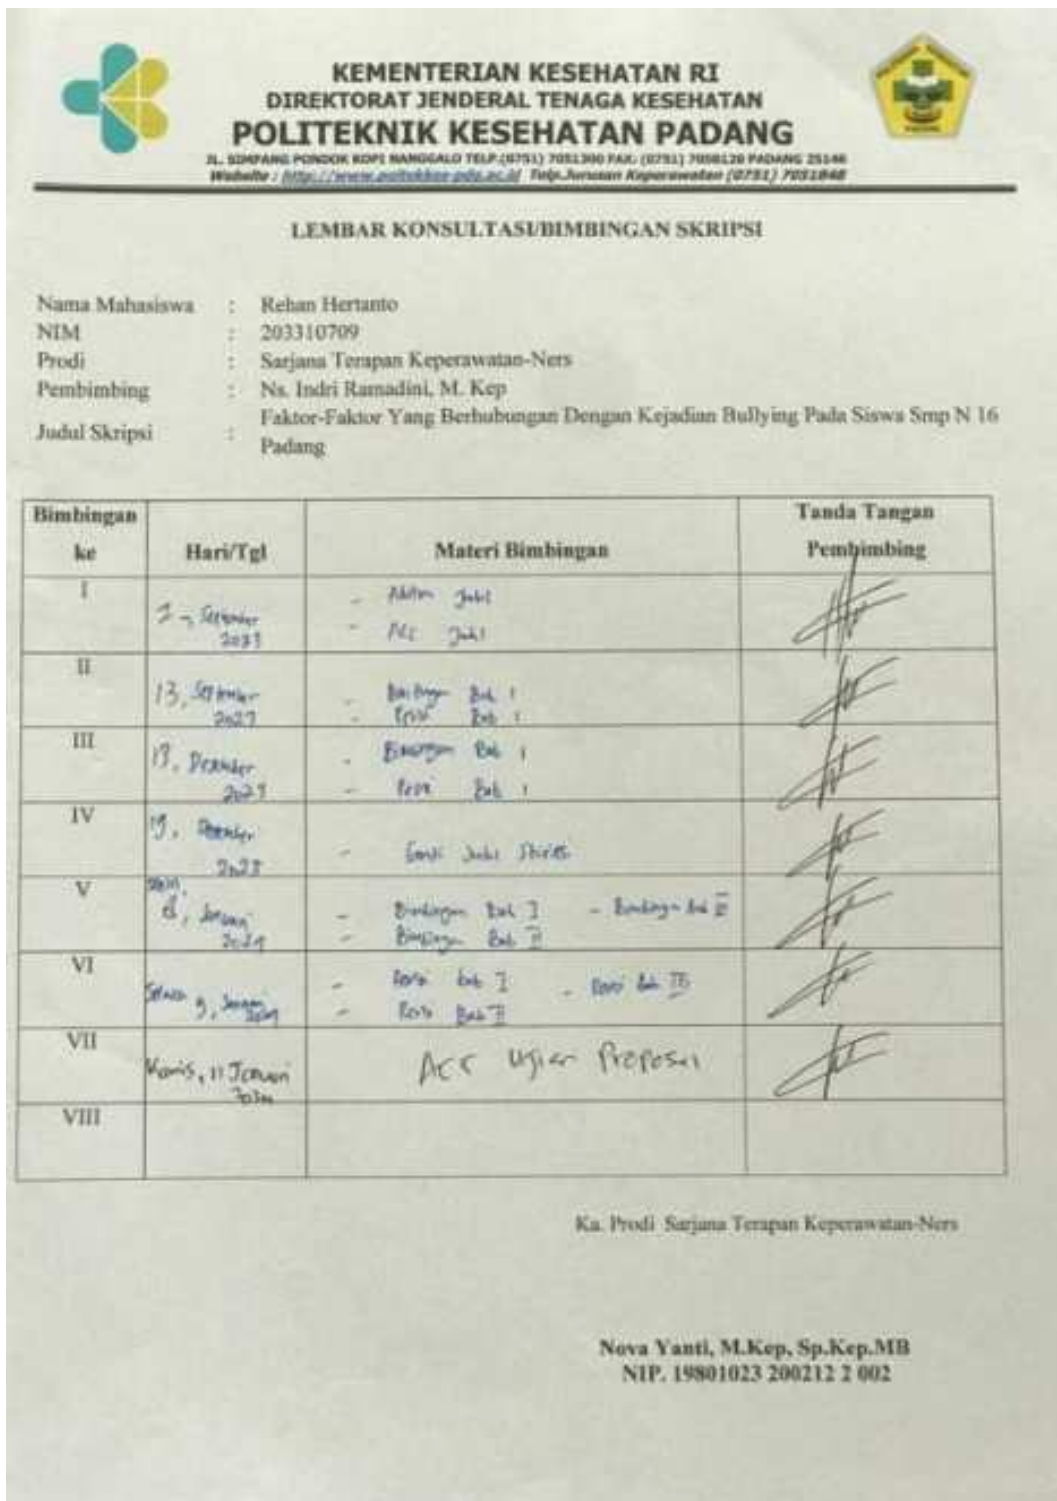 KEMENTERIAN KESEHATAN RI
DIREKTORAT JENDERAL TENAGA KESEHATAN
POLITEKNIK KESEHATAN PADANG
JL. SIMPANG PONDOK KOPI NANGGALO TELP.(0751) 7051300 FAX: (0751) 7058128 PADANG 25146
Website : Telp.Jurusan Keperawatan (0751) 7051848
LEMBAR KONSULTASI/BIMBINGAN SKRIPSI
Nama Mahasiswa : Rehan Hertanto
NIM : 203310709
Prodi : Sarjana Terapan Keperawatan-Ners
Pembimbing : Ns. Indri Ramadini, M. Kep
Judul Skripsi : Faktor-Faktor Yang Berhubungan Dengan Kejadian Bullying Pada Siswa Smp N 16
Padang
Bimbingan ke Hari/Tgl Materi Bimbingan Tanda Tangan Pembimbing
I September - -
II 13, September - Bab I - Bab I
III Desember - Bimbingan Bab I
- Bab I
IV Desember 2023 - Ganti Judul
V 8, Januari - Bimbingan Bab I - Bimbingan Bab III
2024 - Bimbingan Bab II
VI Selasa 9, Januari - Revisi bab I - Revisi Bab III
- Revisi Bab II
VII Kamis, 11 Januari ACC Ujian Proposal
VIII
Ka. Prodi Sarjana Terapan Keperawatan-Ners
Nova Yanti, M.Kep, Sp.Kep.MB
NIP. 19801023 200212 2 002